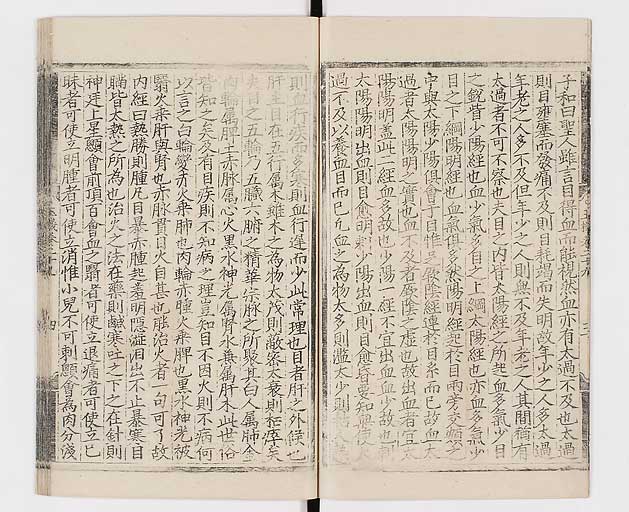 子和曰聖人雖言目得血而能視然血亦有太過不及也太過
則目壅塞而發痛不及則目耗竭而失明故年少之人多太過
年老之人多不及但年少之人則無不及年老之人其間猶有
太過者不可不察也夫目之內眥太陽經之所起血多氣少目
之銳眥少陽經也血少氣多目之上綱太陽經也亦血多氣少
目之下綱陽明經也血氣俱多然陽明經起於目兩旁交鼻
中與太陽少陽俱會于目惟足厥陰經連於目系而已故血太
過者太陽陽明之實也血不及者厥陰之虛也故出血者宜太
陽陽明蓋此二經血多故也少陽一經不宜出血血少故也刺
太陽陽明出血則目愈明刺少陽出血則目愈昏要知無使太
過不及以養血目而已凡血之為物太多則濫太少則
則血行疾而多寒則血行遲而少此常理也目者肝之外候也
肝主目在五行屬木雖木之為物太茂則蔽密太衰則枯瘁矣
夫目之五輪乃五臟六腑之精華宗脉之所聚其白人屬肺金
肉輪屬脾土赤脉屬心火黑水神光屬腎水兼屬肝木此世俗
皆知之矣及有目疾則不知病之理豈知目不因火則不病何
以言之白輪變赤火乘肺也肉輪赤腫火乘脾也黑水神光被
翳火乘肝與腎也赤脉貫目火自甚也能治火者一句可了故
內經曰熱勝則腫凡目暴赤腫起羞明隱澁淚出不止暴寒目
瞞皆大熱之所為也治火之法在藥則鹹寒吐之下之在針則
神廷上星顖會前頂百會血之翳者可使立退痛者可使立已
昧者可使立明腫者可使立消惟小兒不可刺顖會為肉分淺